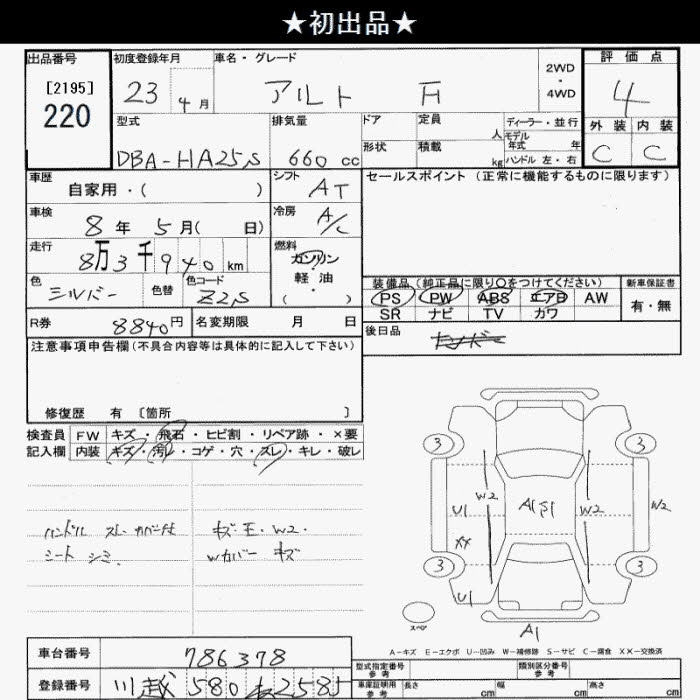 ★初出品★
出品番号
[2195]
220
初度登録年月
23 4月
車名・グレード
アルト F
2WD
・
4WD
評価点
4
外装 内装
C C
型式
DBA-HA25S
排気量
660 cc
ドア
形状
定員 人
積載 kg
ディーラー・並行
モデル年式 年
ハンドル 左・右
車歴
自家用・( )
シフト
AT
セールスポイント (正常に機能するものに限ります)
車検
8年 5月( 日)
冷房
A/C
走行
8万3千940 km
燃料
ガソリン
・
軽油
( )
色
シルバー
色替
色コード
Z2S
装備品 (純正品に限り○をつけてください)
PS PW ABS エアB AW
SR ナビ TV カワ
新車保証書
有・無
R券
8840円
名変期限 月 日
後日品
注意事項申告欄(不具合内容等は具体的に記入して下さい)
修復歴 有 〔箇所 〕
検査員
記入欄
FW キズ・飛石・ヒビ割・リペア跡・×要
内装 キズ・汚レ・コゲ・穴・スレ・キレ・破レ
ハンドル スレ カバー付
シート シミ
キズ・エ・W2・
Wカバー キズ
3 3
W2
U1 A1S1 W2 W2
XX
3 3
U1
スペア
A1
A-キズ E-エクボ U-凹み W-補修跡 S-サビ C-腐食 XX-交換済
車台番号
786378
登録番号
川越 580 2585
型式指定番号
参考
類別区分番号
参考
車庫証明用
参考
長さ cm
幅 cm
高さ cm